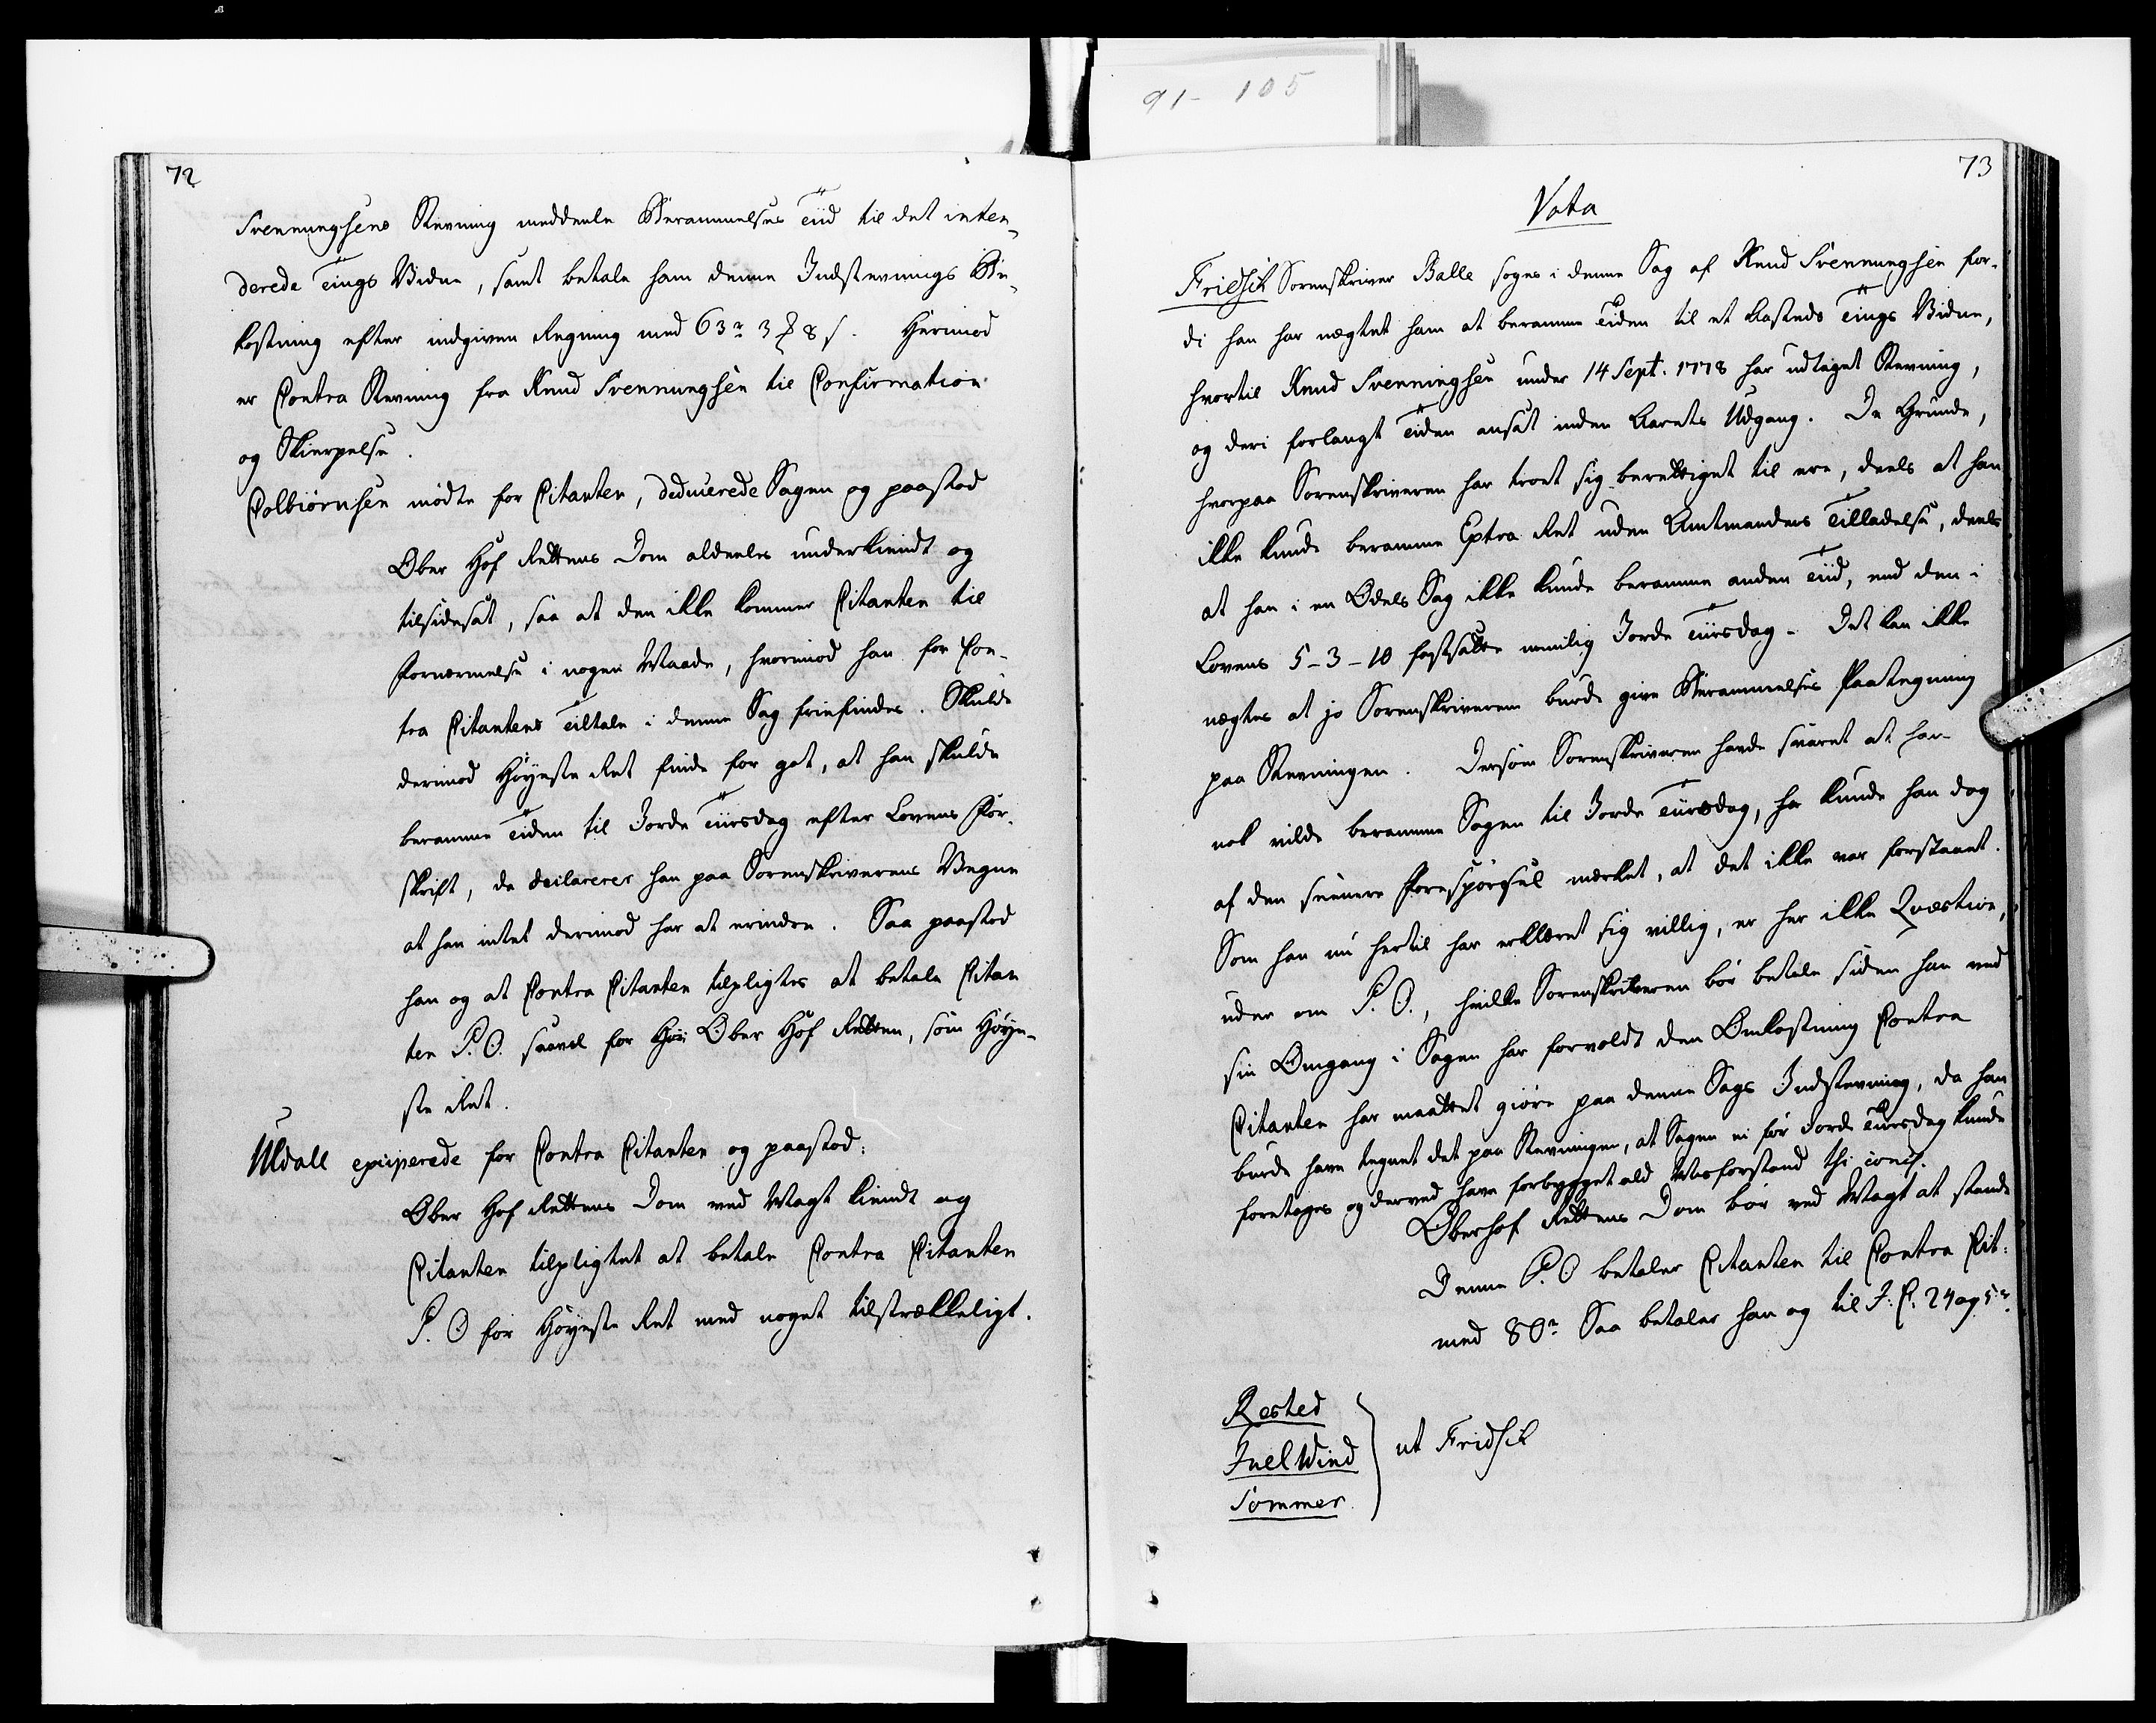 91-105
72
Svennungsens Stevning meddeele Berammelses Tiid til det inten-
derede Tings Vidne, samt betale ham denne Indstevnings Be-
kostning efter indgiven Regning med 63 r 3 8 s. Herimod
er Contra Stevning fra Knud Svennungsen til Confirmation
og Skierpelse.
Colbiörnsen mödte for Citanten, deducerede Sagen og paastod
Ober Hof Rettens Dom aldeeles underkiendt og
tilsidesat, saa at den ikke kommer Citanten til
Fornærmelse i nogen Maade, hvorimod han for Con-
tra Citantens Tiltale i denne Sag friefindes. Skulde
derimod Höyeste Ret finde for got, at han skulde
beramme Tiden til Jorde Tiirsdag efter Lovens For-
skrift, da declarerer han paa Sorenskriverens Vegne
at han intet derimod har at erindre. Saa paastod
han og at Contra Citanten tilpligtes at betale Citan
ten P. O. saavel for Ober Hof Retten, som Höye-
ste Ret.
Uldall exciperede for Contra Citanten og paastod:
Ober Hof Rettens Dom ved Magt kiendt og
Citanten tilpligtet at betale Contra Citanten
P. O for Höyeste Ret med noget tilstrækkeligt.
73
Vota
Fridsch Sorenskriver Balle söges i denne Sag af Knud Svennungsen for-
di han har nægtet ham at beramme Tiden til et Aasteds Tings Vidne,
hvortil Knud Svenningsen under 14 Sept. 1778 har udtaget Stevning,
og deri forlangt Tiden ansat inden Aarets Udgang. De Grunde,
hvorpaa Sorenskriveren har troet sig berettiget til ere, deels at han
ikke kunde beramme Extra Ret uden Amtmandens Tilladelse, deels
at han i en Odels Sag ikke kunde beramme anden Tiid, end den i
Lovens 5-3-10 fastsatte nemlig Jorde Tiirsdag - Det kan ikke
nægtes at jo Sorenskriveren burde give Berammelses Paategning
paa Stevningen. Dersom Sorenskriveren havde svaret at han
nok vilde beramme Sagen til Jorde Tiirsdag, saa kunde han dog
af den seenere Forespörgsel mærket, at det ikke var forstaaet.
Som han nu hertil har erklæret sig villig, er her ikke Qvæstion,
uden om P. O., hvilke Sorenskriveren bör betale siden han ved
sin Omgang i Sagen har forvoldt den Omkostning Contra
Citanten har maattet giöre paa denne Sags Indstevning, da han
burde have tegnet det paa Stevningen, at Sagen ei för Jorde Tiirsdag kunde
foretages og derved have forbygget ald Misforstand thi concl.
Oberhof Rettens Dom bör ved Magt at stande
Denne P. O betaler Citanten til Contra Cit:
med 80 r. Saa betaler han og til J. C. 24 og 5 r.
Rosted
Juel Wind
Sommer
ut Fridsch